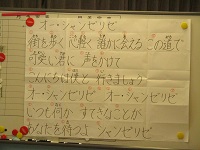 オー・シャンゼリゼ
街を歩く 心軽く 誰かに会える この道で
可愛い君に 声をかけて
こんにちは僕と 行きましょう
オー・シャンゼリゼ オー・シャンゼリゼ
いつも何か すてきなことが
あなたを待つよ シャンゼリゼ